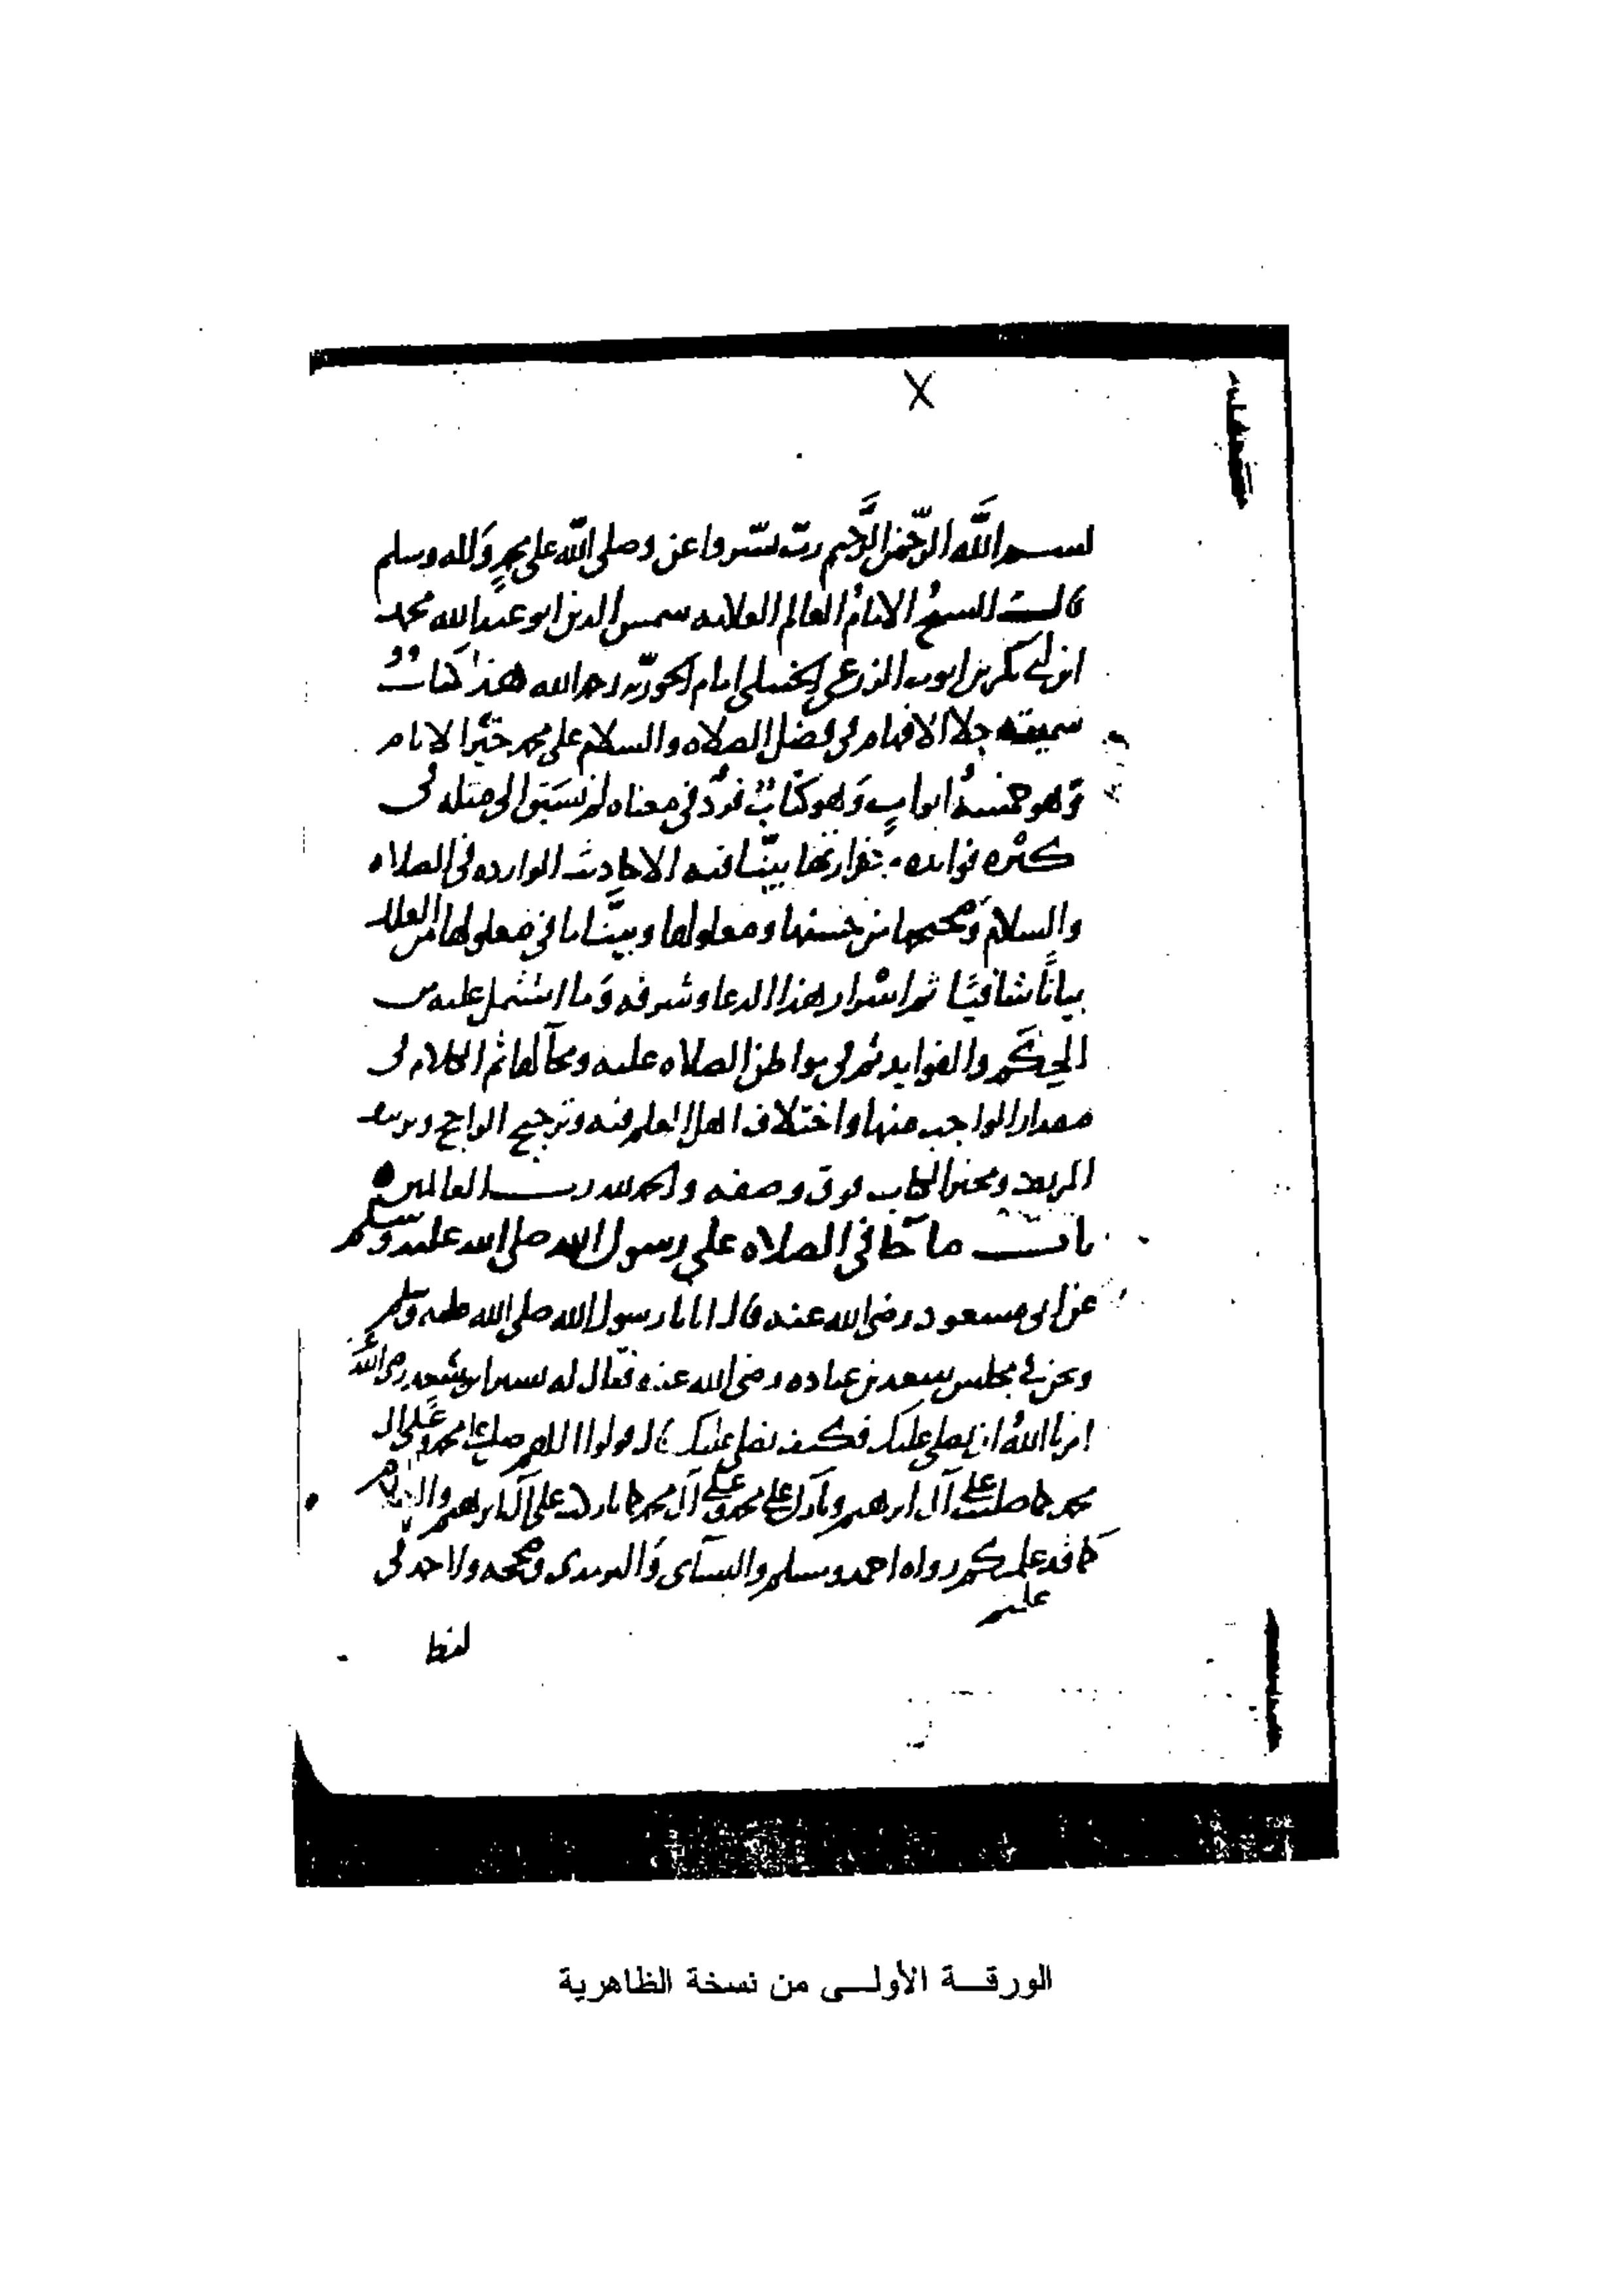 X
بسم الله الرحمن الرحيم رب يسر واعن وصلى الله على محمد وآله وسلم
قال الشيخ الامام العالم العلامه شمس الدين ابو عبد الله محمد
ابن ابي بكر بن ايوب الزرعي الحنبلي امام الجوزيه رحمه الله هذا كتاب
سميته جلا الافهام في فضل الصلاه والسلام على محمد خير الانام
وهو خمسة ابواب وهو كتاب فرد في معناه لم نسبق الى مثله في
كثره فوايده وغزارتها بينا فيه الاحاديث الوارده في الصلاه
والسلام وصحيحها من حسنها ومعلولها وبينا ما في معلولها من العلل
بيانا شافيا ثم اسرار هذا الدعا وشرفه وما اشتمل عليه من
الحكم والفوايد ثم في مواطن الصلاه عليه ومحالها ثم الكلام في
مقدار الواجب منها واختلاف اهل العلم فيه وترجيح الراجح وتزييف
المزيف ومخبر الكتاب فوق وصفه والحمد لله رب العالمين
باب ما جا في الصلاه على رسول الله صلى الله عليه وسلم
عن ابي مسعود رضي الله عنه قال اتانا رسول الله صلى الله عليه وسلم
ونحن في مجلس سعد بن عباده رضي الله عنه فقال له بشير بن سعد رضي الله عنه
امرنا الله ان نصلي عليك فكيف نصلي عليك قال قولوا اللهم صل على محمد وعلى ال
محمد كما صليت على آل ابرهيم وبارك على محمد وعلى آل محمد كما باركت على آل ابرهيم والسلام
كما قد علمتكم رواه احمد ومسلم والنسآى والترمدى وصححه ولاحمد في
لفظ
الورقة الأولى من نسخة الظاهرية